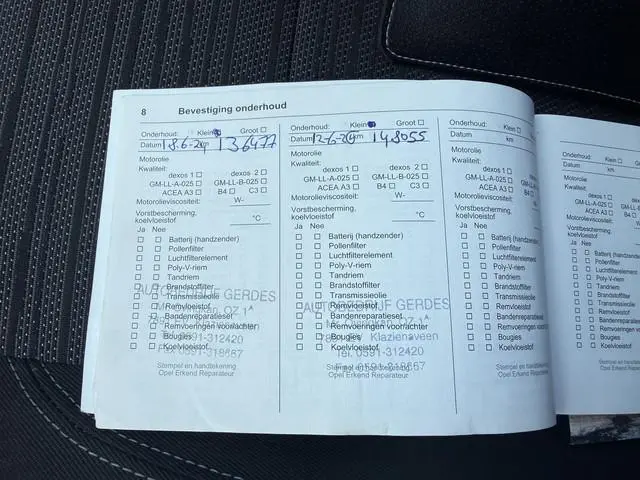 8 Bevestiging onderhoud
Onderhoud: Klein Groot
Datum 18-6-20 km 136477
Motorolie
Kwaliteit:
dexos 1 dexos 2
GM-LL-A-025 GM-LL-B-025
ACEA A3 B4 C3
Motorolieviscositeit: W-
Vorstbescherming, koelvloeistof °C
Ja Nee
Batterij (handzender)
Pollenfilter
Luchtfilterelement
Poly-V-riem
Tandriem
Brandstoffilter
Transmissieolie
Remvloeistof
Bandenreparatieset
Remvoeringen voor/achter
Bougies
Koelvloeistof
AUTOBEDRIJF GERDES
OZ 1A
0591-312420
Fax 0591-318667
Stempel en handtekening
Opel Erkend Reparateur
Onderhoud: Klein Groot
Datum 12-6-20 km 148055
Motorolie
Kwaliteit:
dexos 1 dexos 2
GM-LL-A-025 GM-LL-B-025
ACEA A3 B4 C3
Motorolieviscositeit: W-
Vorstbescherming, koelvloeistof °C
Ja Nee
Batterij (handzender)
Pollenfilter
Luchtfilterelement
Poly-V-riem
Tandriem
Brandstoffilter
Transmissieolie
Remvloeistof
Bandenreparatieset
Remvoeringen voor/achter
Bougies
Koelvloeistof
AUTOBEDRIJF GERDES
OZ 1A
Klazienaveen
Tel. 0591-312420
0591-318667
Stempel en handtekening
Opel Erkend Reparateur
Onderhoud: Klein
Datum km
Motorolie
Kwaliteit:
dexos 1
GM-LL-A-025
ACEA A3
Motorolieviscositeit:
Vorstbescherming, koelvloeistof
Ja Nee
Batterij (handzender)
Pollenfilter
Luchtfilterelement
Poly-V-riem
Tandriem
Brandstoffilter
Transmissieolie
Remvloeistof
Bandenreparatieset
Remvoeringen
Bougies
Koelvloeistof
Stempel en handtekening
Opel Erkend Reparateur
Onderhoud: Klein
Datum km
Motorolie
Kwaliteit:
dexos 1
GM-LL-A-025
ACEA A3
Motorolieviscositeit:
Vorstbescherming, koelvloeistof
Ja Nee
Batterij
Pollenfilter
Luchtfilterelement
Poly-V-riem
Tandriem
Brandstoffilter
Transmissieolie
Remvloeistof
Bandenreparatieset
Remvoeringen
Bougies
Koelvloeistof
Stempel en
Opel Erkend